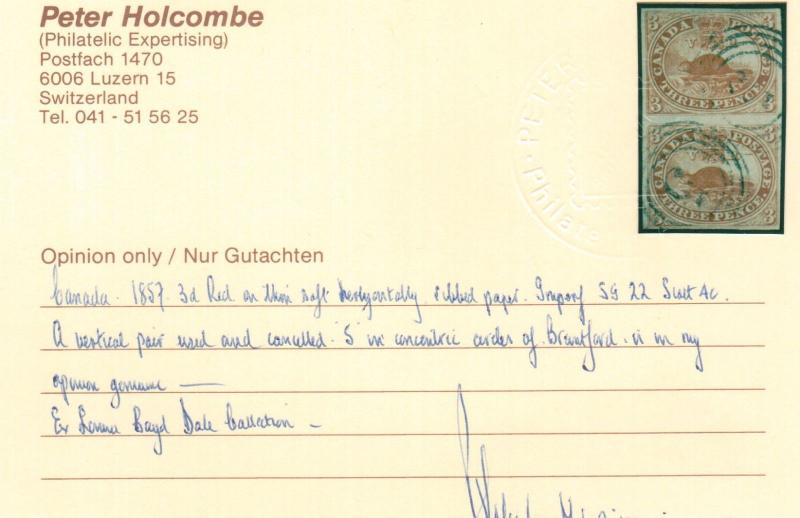 Peter Holcombe
(Philatelic Expertising)
Postfach 1470
6006 Luzern 15
Switzerland
Tel. 041 - 51 56 25
3 3
CANADA POSTAGE
THREE PENCE
3 3
CANADA POSTAGE
THREE PENCE
3
PETER
Philate
Opinion only / Nur Gutachten
Canada. 1857. 3d Red on thin soft horizontally ribbed paper. Imperf SG 22 Scott 4c.
A vertical pair used and cancelled '5' in concentric circles of Brantford. is in my
opinion genuine —
Ex Boyd Dale Collection —